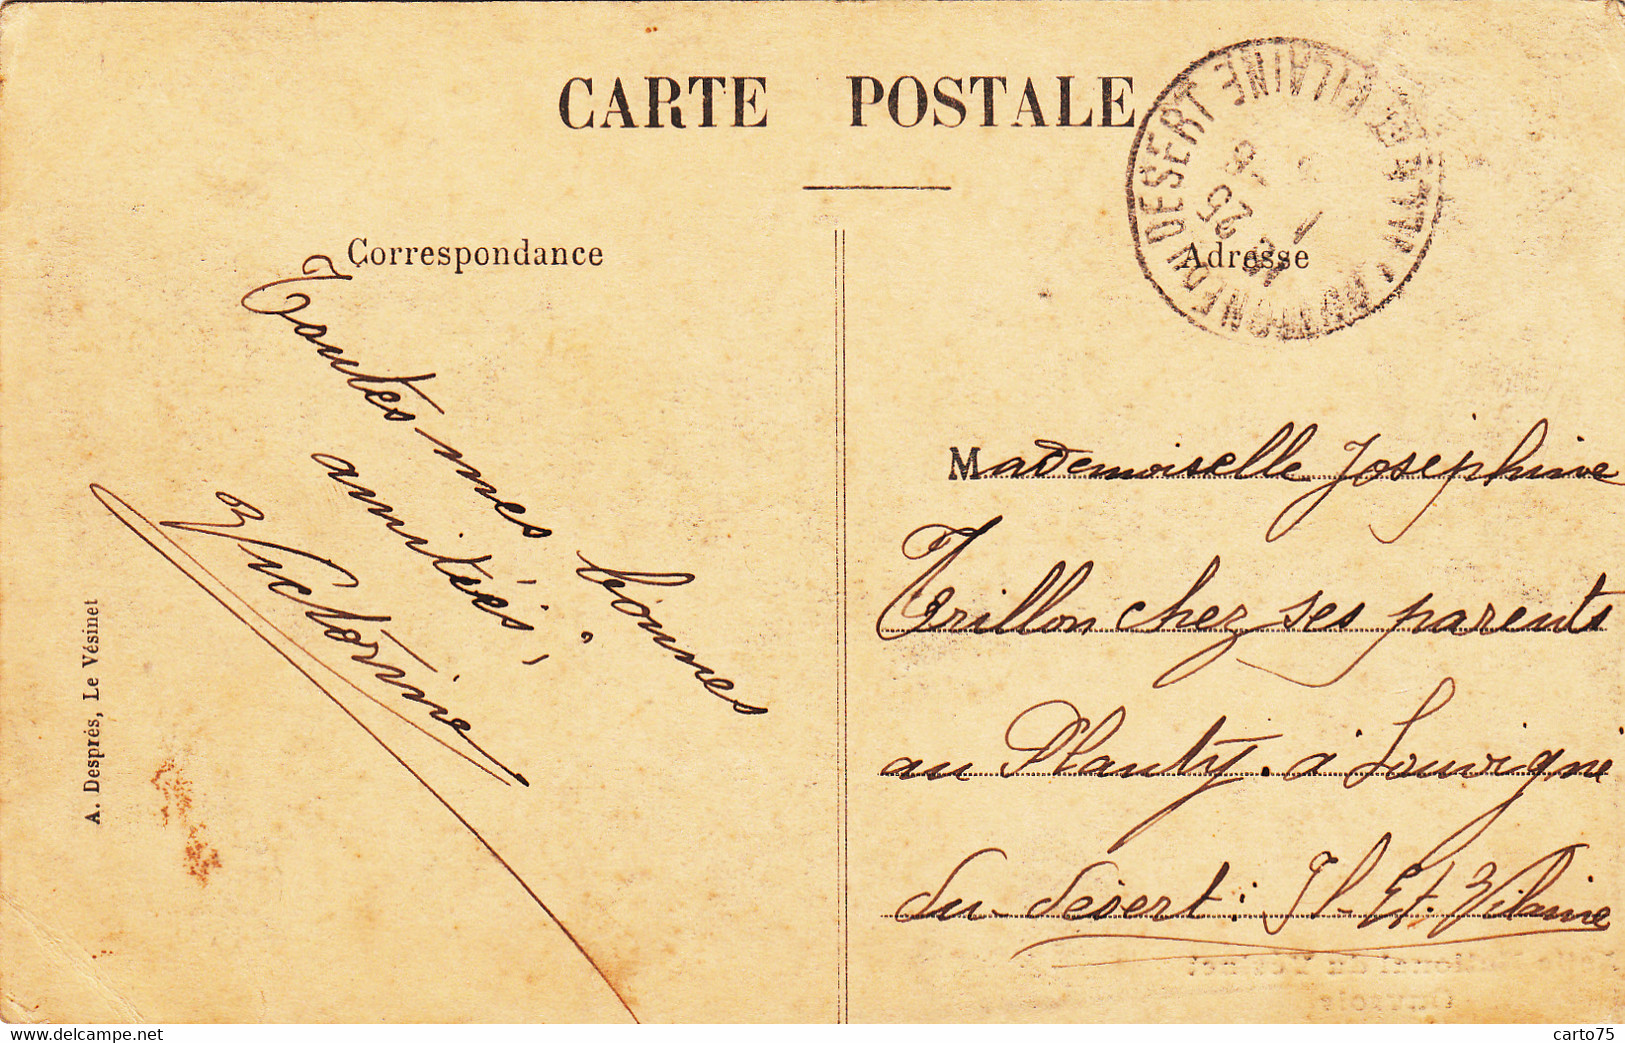 CARTE POSTALE
Correspondance
Toutes mes bonnes
amitiés,
Victorine
A. Després, Le Vésinet
LOUVIGNE DU DESERT ILLE ET VILAINE
25
Adresse
Mademoiselle Joséphine
Trillon chez ses parents
au Plauty. à Louvigné
du-désert: Il-Et-Vilaine
delcampe.net
carto75